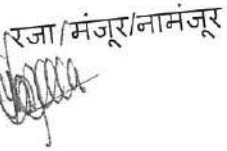 रजा/मंजूर/नामंजूर